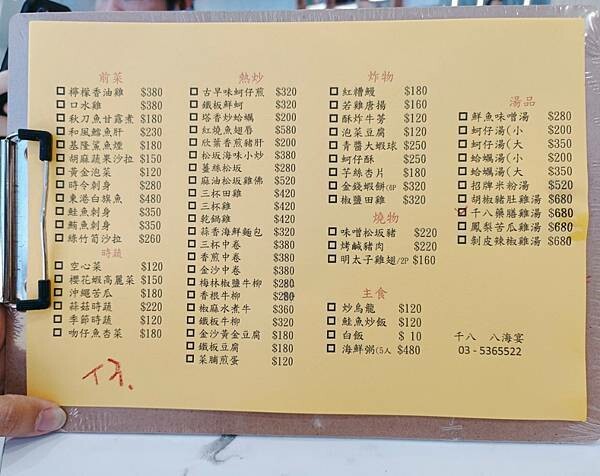 前菜
檸檬香油雞 $380
口水雞 $380
秋刀魚甘露煮 $180
和風鱈魚肝 $230
基隆鯊魚煙 $180
胡麻蔬果沙拉 $150
黃金泡菜 $120
時令刺身 $280
東港白旗魚 $480
鮭魚刺身 $350
鮪魚刺身 $350
綠竹筍沙拉 $260
時蔬
空心菜 $120
櫻花蝦高麗菜 $150
沖繩苦瓜 $180
蒜菇時蔬 $220
季節時蔬 $120
吻仔魚杏菜 $180
熱炒
古早味蚵仔煎 $320
鐵板鮮蚵 $320
塔香炒蛤蠣 $200
紅燒魚翅唇 $580
欣葉香煎豬肝 $280
松坂海味小炒 $380
薑絲松坂 $280
麻油松坂雞佛 $520
三杯田雞 $420
三杯雞 $420
乾鍋雞 $420
蒜香海鮮麵包 $320
三杯中卷 $380
香煎中卷 $380
金沙中卷 $380
梅林椒鹽牛柳 $280
香根牛柳 $280
椒麻水煮牛 $360
鐵板牛柳 $320
金沙黃金豆腐 $180
鐵板豆腐 $180
菜脯煎蛋 $120
炸物
紅糟鰻 $180
若雞唐揚 $160
酥炸牛蒡 $120
泡菜豆腐 $120
青醬大蝦球 $250
蚵仔酥 $250
芋絲杏片 $180
金錢蝦餅(6P $320
椒鹽田雞 $320
燒物
味噌松坂豬 $220
烤鹹豬肉 $220
明太子雞翅/2P $160
主食
炒烏龍 $120
鮭魚炒飯 $120
白飯 $ 10
海鮮粥(5人 $480
湯品
鮮魚味噌湯 $280
蚵仔湯(小 $200
蚵仔湯(大 $350
蛤蠣湯(小 $200
蛤蠣湯(大 $350
招牌米粉湯 $520
胡椒豬肚雞湯 $680
千八藥膳雞湯 $680
鳳梨苦瓜雞湯 $680
剝皮辣椒雞湯 $680
千八 八海宴
03-5365522